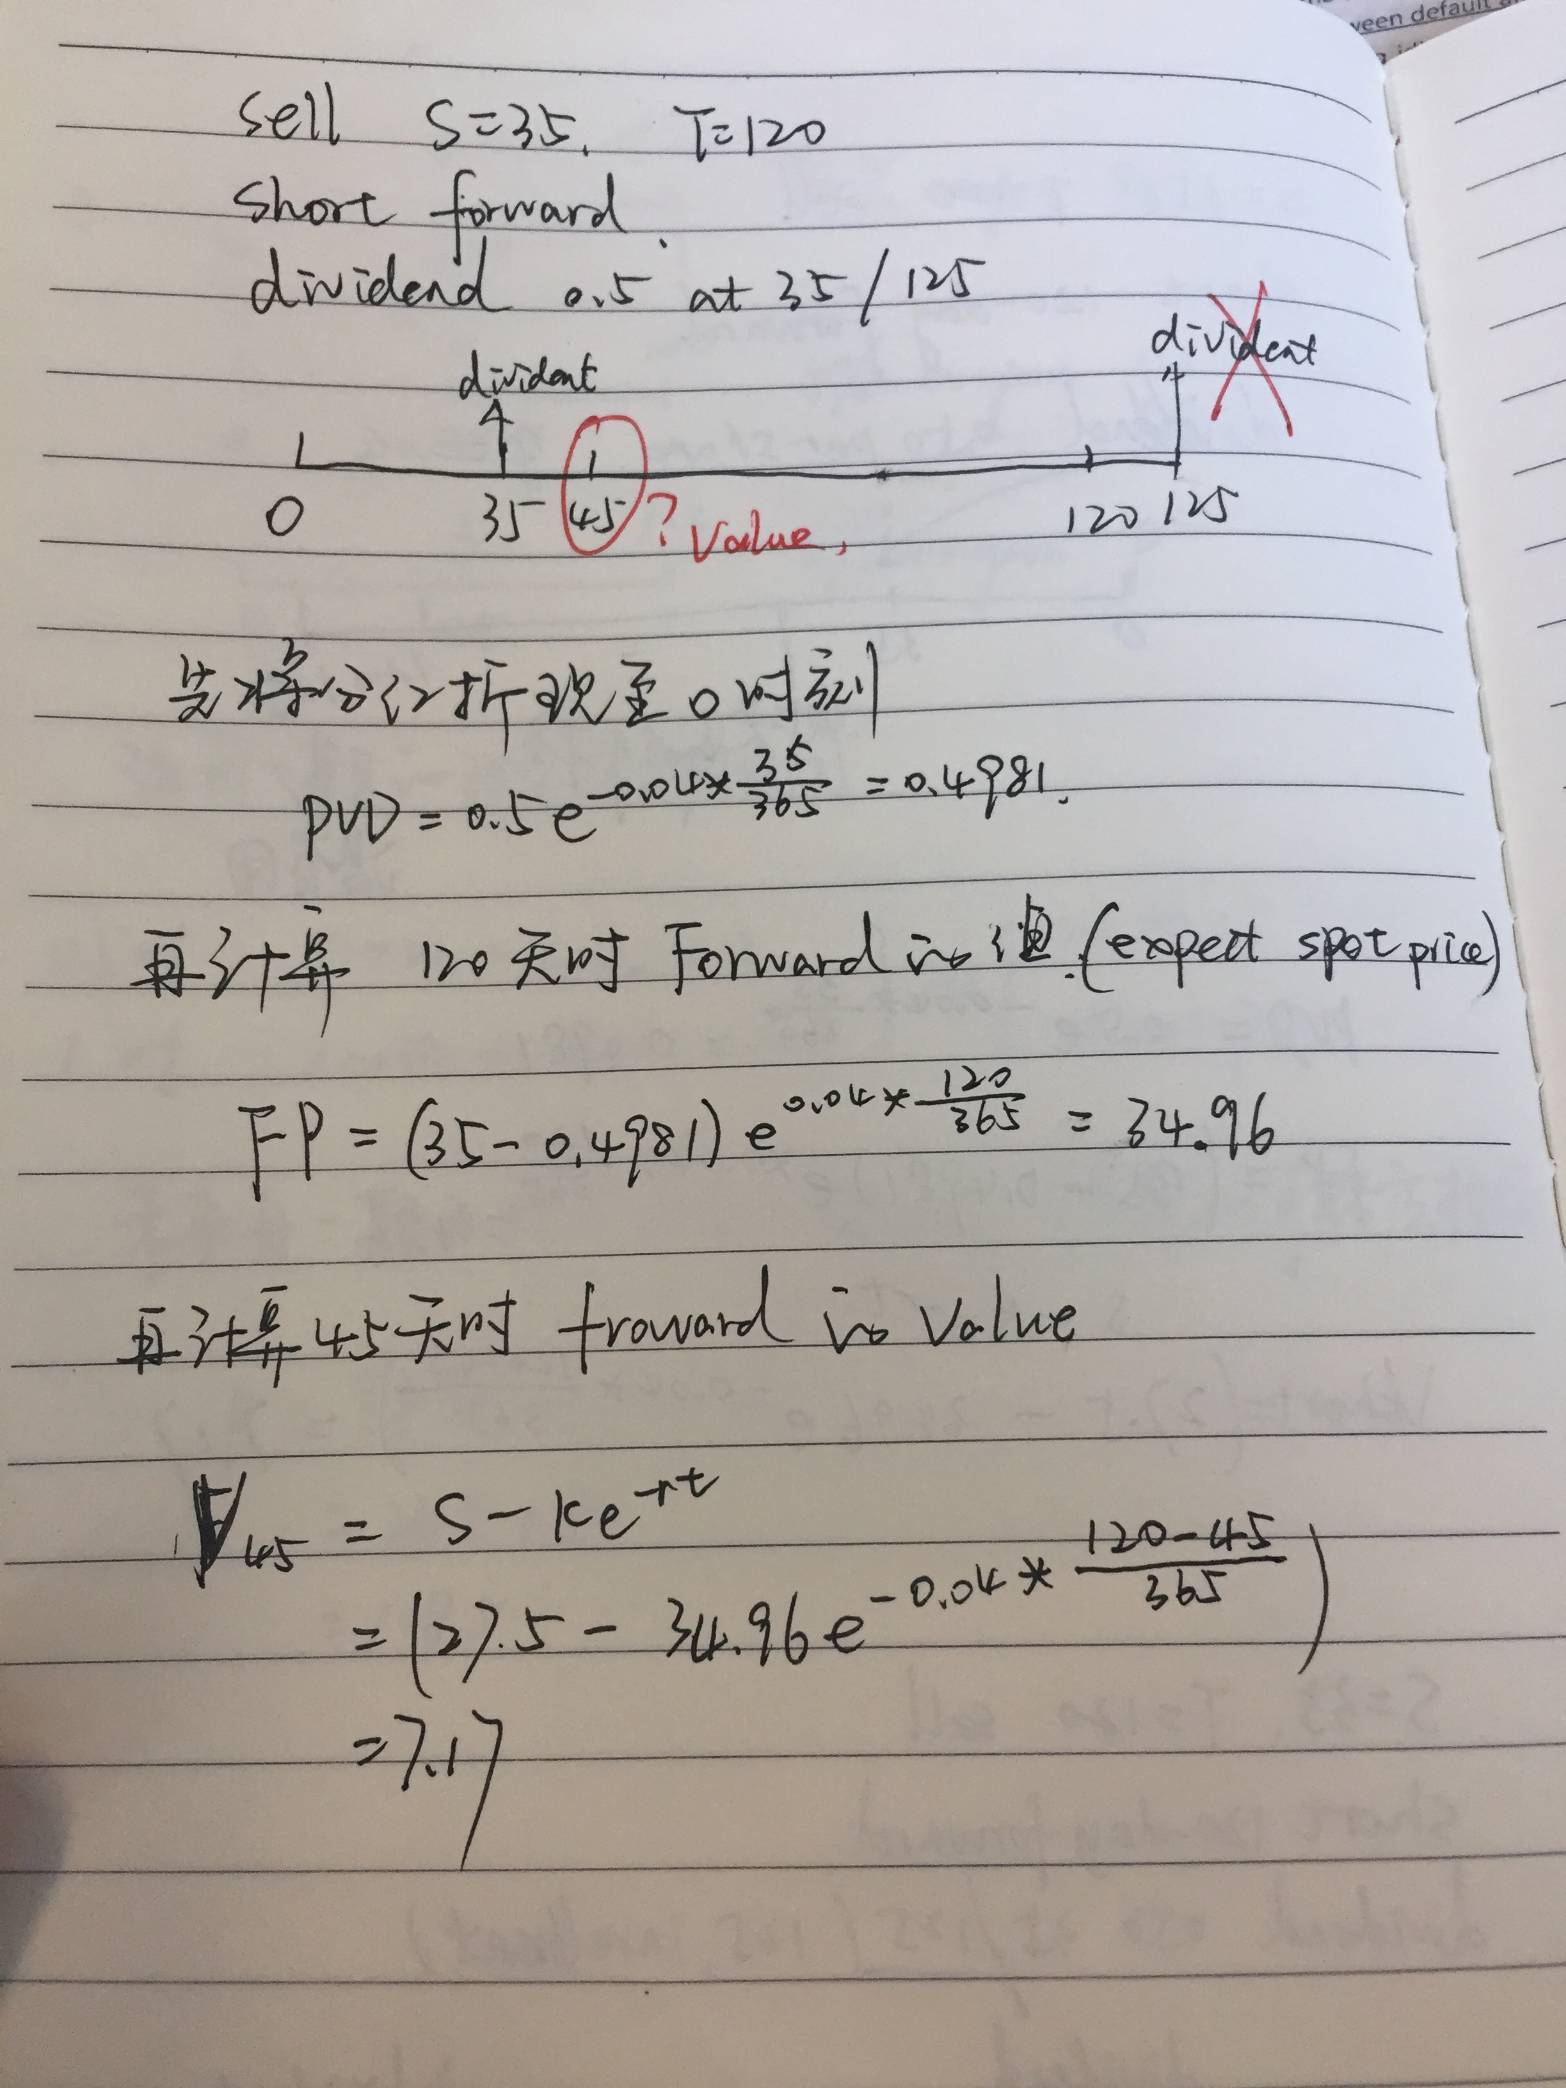 veen default
sell S=35. T=120
short forward.
dividend 0.5 at 35/125
divident divident
0 35 45 ? Value, 120 125
先将分红折现至0时刻
PVD = 0.5e^{-0.04*\frac{35}{365}} = 0.4981.
再计算 120天时 Forward的值.(expect spot price)
FP = (35-0.4981)e^{0.04*\frac{120}{365}} = 34.96
再计算45天时 froward的Value
V_{45} = S-Ke^{-rt}
=(27.5-34.96e^{-0.04*\frac{120-45}{365}})
=7.17